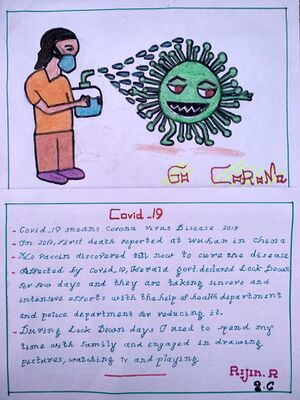 Go CoRoNa
Covid_19
- Covid_19 means Corona Virus Disease 2019
- In 2019, First death reported at Wuhan in China
- No Vaccin discovered till now to cure the disease
- Affected by Covid_19, Kerala govt. declared Lock Down
for few days and they are taking sincere and
intensive efforts with the help of health department
and police department for reducing it.
- During Lock Down days I used to spend my
time with family and engaged in drawing
pictures, watching TV and playing.
Rijin. R
2.C